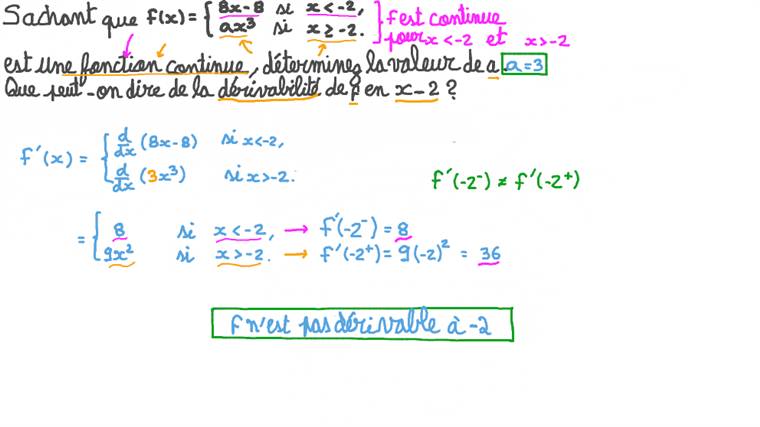 Sachant que f(x) = { 8x-8 si x < -2, } f est continue
ax³ si x ≥ -2. pour x < -2 et x > -2
est une fonction continue, détermines la valeur de a. a = 3
Que peut-on dire de la dérivabilité de f en x - 2 ?
f'(x) = { d/dx (8x-8) si x < -2,
d/dx (3x³) si x > -2.
f'(-2⁻) ≠ f'(-2⁺)
= { 8 si x < -2, → f'(-2⁻) = 8
9x² si x > -2. → f'(-2⁺) = 9(-2)² = 36
f n'est pas dérivable à -2